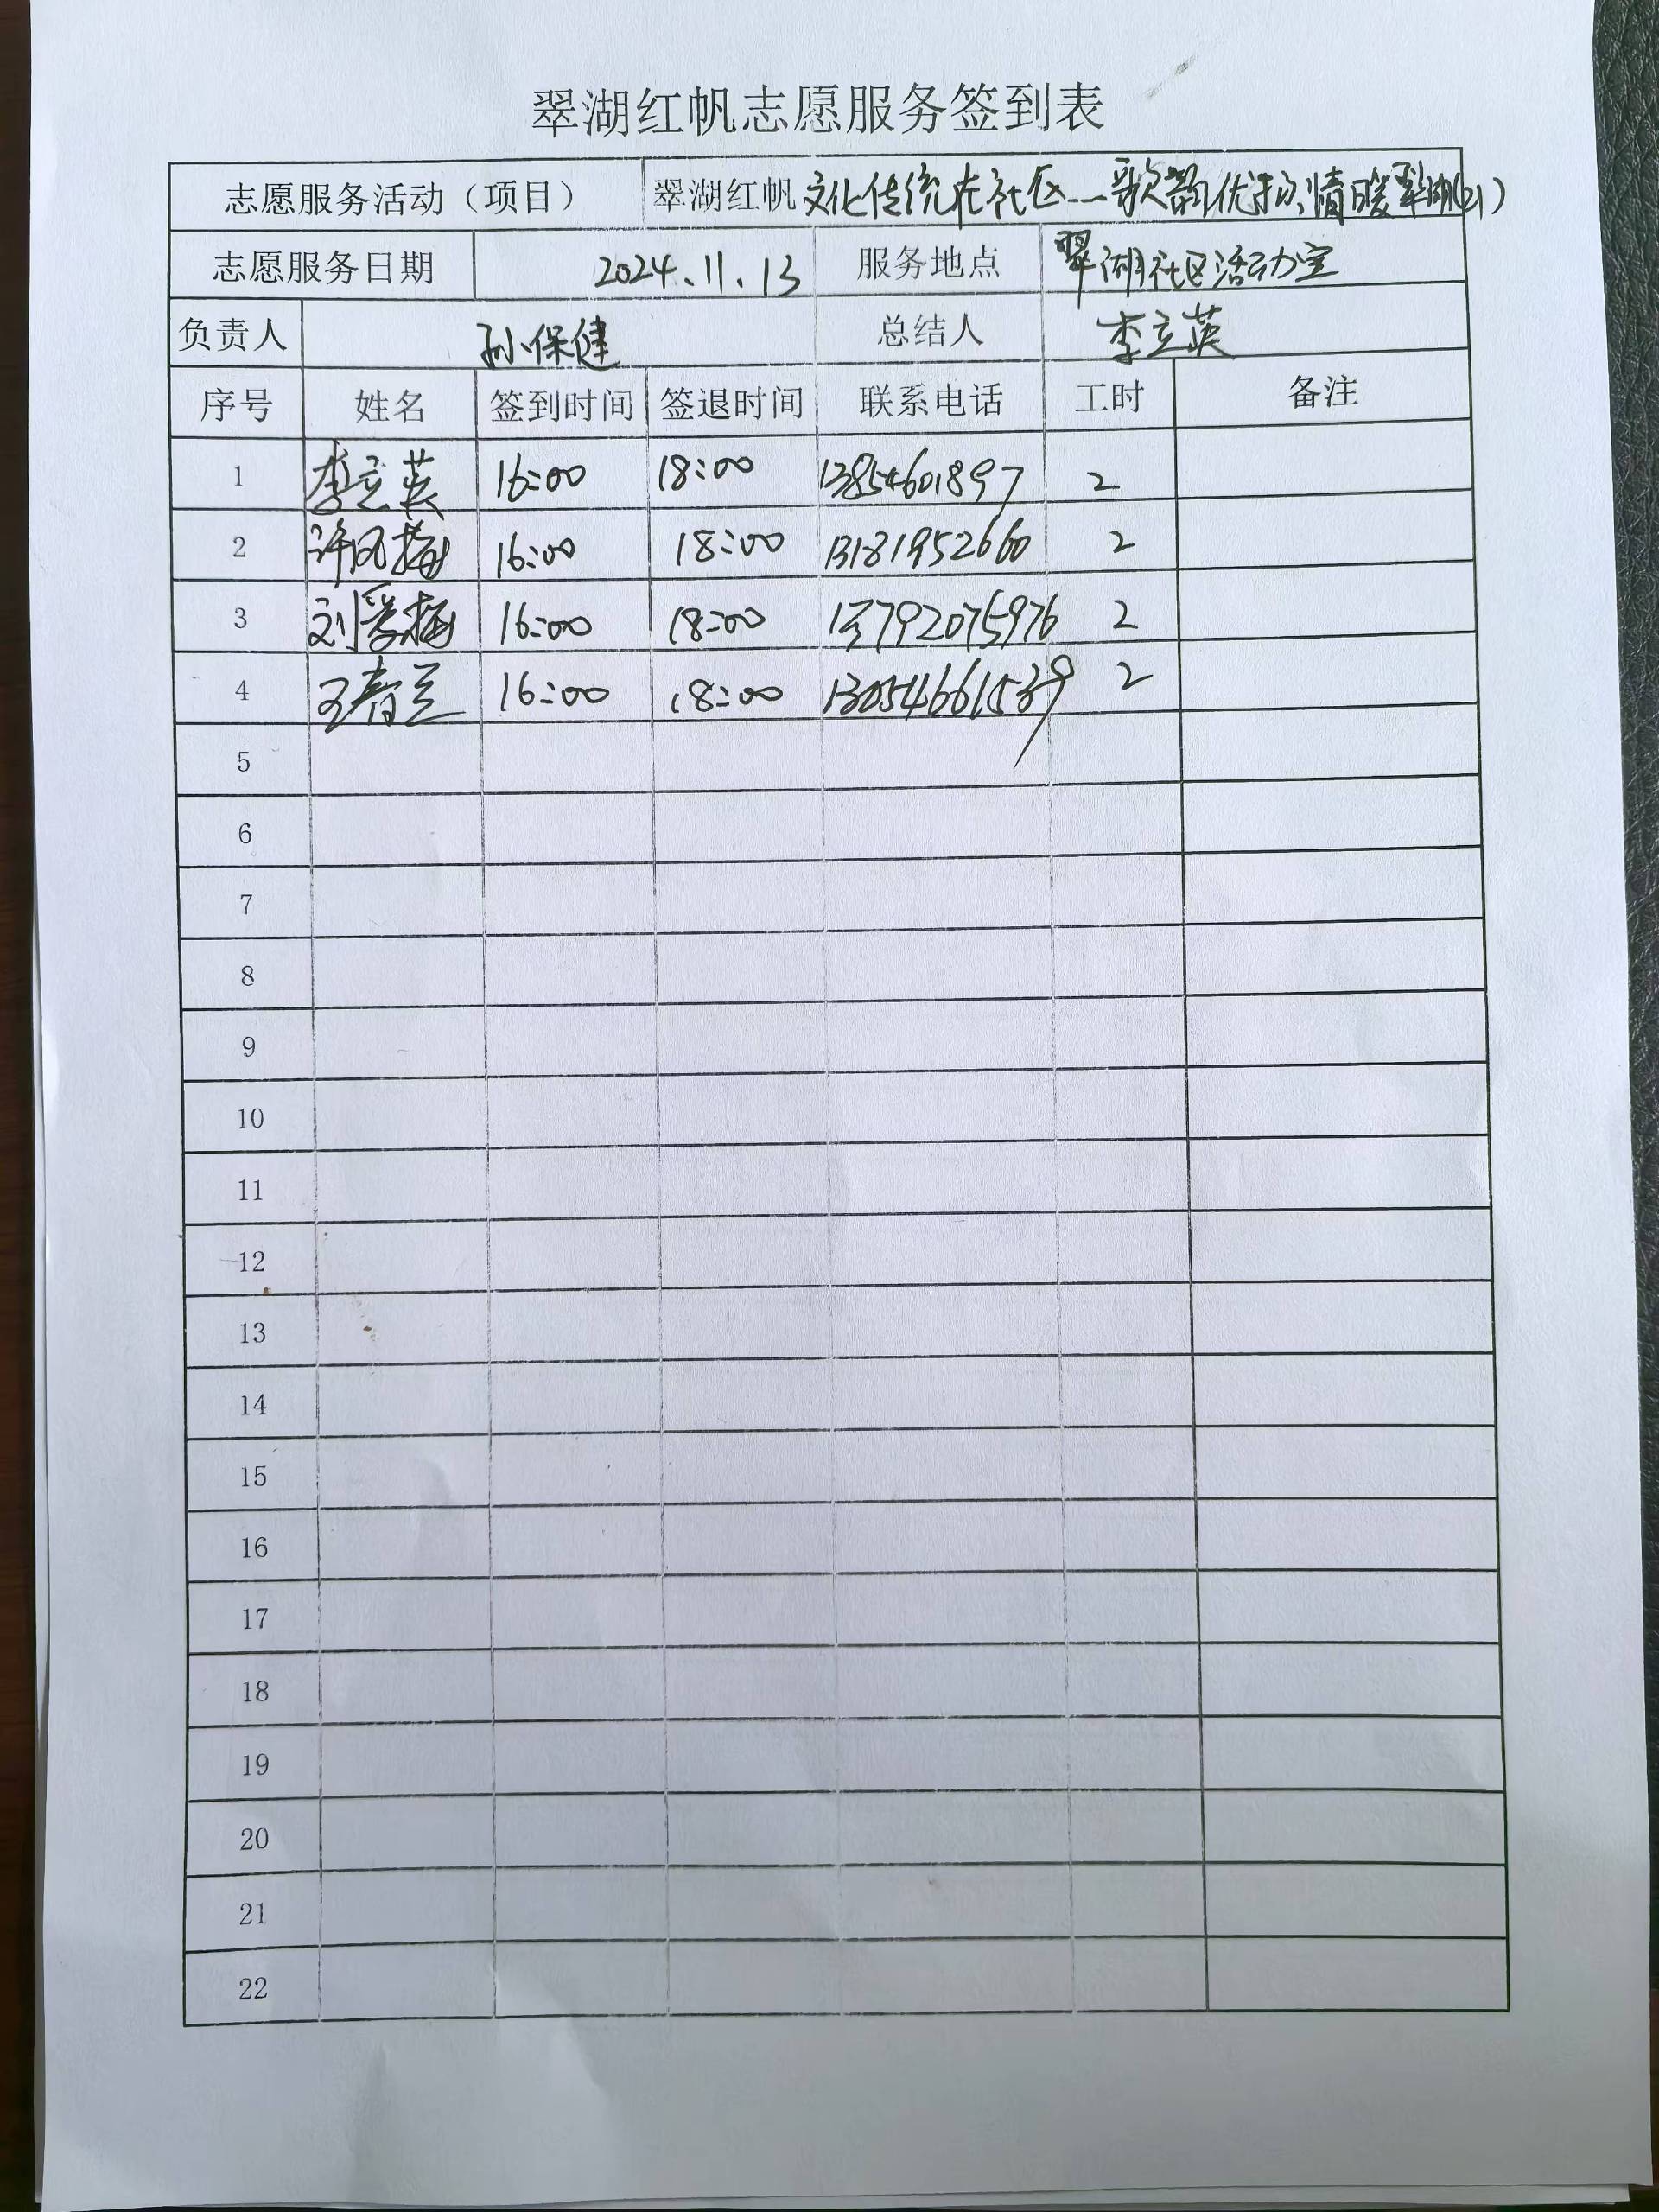 翠湖红帆志愿服务签到表
志愿服务活动（项目） 翠湖红帆 文化传统在社区——歌韵优扬,情暖翠湖(21)
志愿服务日期 2024.11.13 服务地点 翠湖社区活动室
负责人 孙保健 总结人 李立英
序号 姓名 签到时间 签退时间 联系电话 工时 备注
1 李立英 16:00 18:00 13854601897 2
2 许风梅 16:00 18:00 13181952660 2
3 刘爱梅 16:00 18:00 13792075976 2
4 王春兰 16:00 18:00 13054661539 2
5
6
7
8
9
10
11
12
13
14
15
16
17
18
19
20
21
22